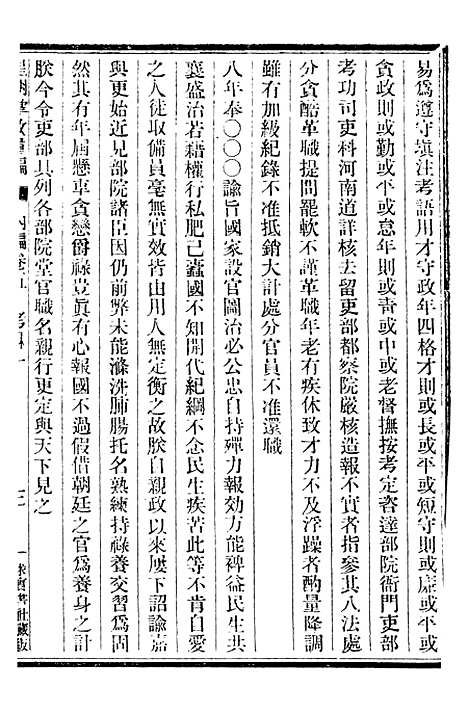 易爲遵守塡注考語用才守政年四格才則或長或平或短守則或廉或平或
貪政則或勤或平或怠年則或靑或中或老督撫按考定咨達部院衙門吏部
考功司吏科河南道詳核去留吏部都察院嚴核造報不實者指參其八法處
分貪酷革職提問罷軟不謹革職年老有疾休致才力不及浮躁者酌量降調
雖有加級紀錄不准抵銷大計處分官員不准還職
八年奉〇〇〇諭旨國家設官圖治必公忠自持殫力報効方能裨益民生共
襄盛治若藉權行私肥己蠹國不知開代紀綱不念民生疾苦此等不肯自愛
之人徒取備員毫無實效皆由用人無定衡之故朕自親政以來屢下詔諭嘉
與更始近見部院諸臣因仍前弊未能滌洗肺腸托名熟練持祿養交習爲固
然其有年屆懸車貪戀爵祿豈眞有心報國不過假借朝廷之官爲養身之計
朕今令吏部具列各部院堂官職名親行更定與天下見之
內編卷五 考